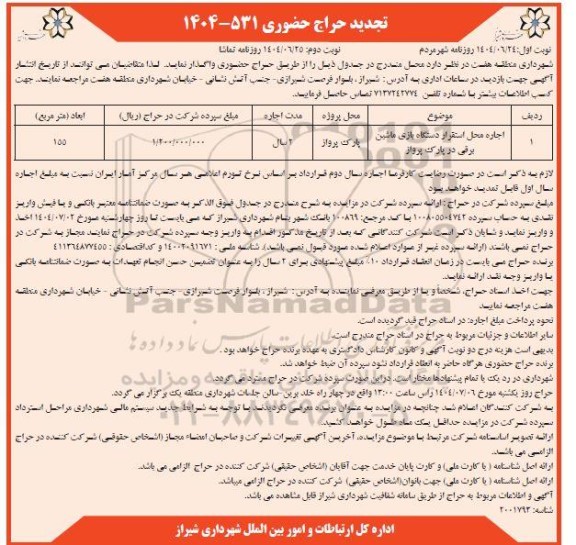 تجدید حراج حضوری ۵۳۱-۱۴۰۴
نوبت اول:۱۴۰۴/۰۶/۲۴ روزنامه شهرمردم
نوبت دوم: ۱۴۰۴/۰۶/۲۵ روزنامه تماشا
شهرداری منطقه هفت در نظر دارد محل مندرج در جدول ذیل را از طریق حراج حضوری واگذار نماید. لذا متقاضیان می توانند از تاریخ انتشار
آگهی جهت بازدید در ساعات اداری به آدرس: شیراز، بلوار فرصت شیرازی- جنب آتش نشانی - خیابان شهرداری منطقه هفت مراجعه نمایند. جهت
کسب اطلاعات بیشتر با شماره تلفن ۷۱۳۷۲۴۲۷۷۴ تماس حاصل فرمایید.
ردیف موضوع محل پروژه مدت اجاره مبلغ سپرده شرکت در حراج (ریال) ابعاد (متر مربع)
۱ اجاره محل استقرار دستگاه بازی ماشین برقی در پارک پرواز پارک پرواز ۲ سال ۱/۲۰۰/۰۰۰/۰۰۰ ۱۵۵
لازم به ذکر است در صورت رضایت کارفرما اجاره سال دوم قرارداد بر اساس نرخ تورم اعلامی هر سال مرکز آمار ایران نسبت به مبلغ اجاره
سال اول قابل تمدید خواهد بود
مبلغ سپرده شرکت در حراج : ارائه سپرده شرکت در مزایده به شرح مندرج در جدول فوق الذکر به صورت ضمانتنامه معتبر بانکی و یا فیش واریز
نقدی به حساب سپرده ۱۰۰۸۰۵۵۰۴۷۴۲ با کد مرجع: ۱۰۰۸۶۹ بانک شهر بنام شهرداری شیراز که می بایست تا روز چهارشنبه مورخ ۱۴۰۴/۰۷/۰۲ اخذ
و واریز نمایند و شایان ذکر است شرکت کنندگانی که بعد از تاریخ مذکور اقدام به واریز وجه سپرده شرکت در حراج نمایند مجاز به شرکت در
حراج نمی باشند. (ارائه سپرده غیر از موارد اعلام شده مورد قبول نمی باشد). شناسه ملی : ۱۴۰۰۲۰۹۱۶۷۱ و کداقتصادی : ۴۱۱۳۶۴۸۷۷۴۵۵
برنده حراج می بایست در زمان انعقاد قرارداد ۱۰٪ مبلغ پیشنهادی برای ۲ سال را به عنوان تضمین حسن انجام تعهدات به صورت ضمانتنامه بانکی
یا واریز وجه نقد ارائه نمایند.
جهت اخذ اسناد حراج، شخصاً و یا از طریق معرفی نماینده به آدرس: شیراز، بلوار فرصت شیرازی- جنب آتش نشانی - خیابان شهرداری منطقه
هفت مراجعه نمایند
نحوه پرداخت مبلغ اجاره: در اسناد حراج قید گردیده است.
سایر اطلاعات و جزئیات مربوط به حراج در اسناد حراج مندرج است.
بدیهی است هزینه درج دو نوبت آگهی و کانون کارشناس دادگستری به عهده برنده حراج خواهد بود.
برنده حراج حضوری هرگاه حاضر به انعقاد قرارداد نشود سپرده آن ضبط خواهد شد.
شهرداری در رد یک یا تمام پیشنهادها مختار است. در این صورت سپرده شرکت در حراج مسترد می گردد.
حراج روز یکشنبه مورخ ۱۴۰۴/۰۷/۰۶ رأس ساعت ۱۳:۰۰ واقع در چهار راه خلد برین- سالن جلسات شهرداری منطقه یک برگزار می گردد.
به شرکت کنندگان اعلام شد چنانچه در مزایده به عنوان برنده معرفی نگردیدند با توجه به شرایط جدید سیستم مالی شهرداری مراحل استرداد
سپرده شرکت در مزایده حداقل یک ماه طول خواهد کشید.
ارائه تصویر اساسنامه شرکت مرتبط با موضوع مزایده، آخرین آگهی تغییرات شرکت و صاحبان امضاء مجاز (اشخاص حقوقی) شرکت کننده در حراج
الزامی می باشد.
ارائه اصل شناسنامه (یا کارت ملی) و کارت پایان خدمت جهت آقایان (اشخاص حقیقی) شرکت کننده در حراج الزامی می باشد.
ارائه اصل شناسنامه (یا کارت ملی) جهت بانوان(اشخاص حقیقی) شرکت کننده در حراج الزامی میباشد.
آگهی و اطلاعات مربوط به حراج از طریق سامانه شفافیت شهرداری شیراز قابل مشاهده می باشد.
شناسه: ۲۰۰۱۷۹۳
ParsNamadData
۰۲۱-۸۸۳۴۹۶۷۰-۵
اداره کل ارتباطات و امور بین الملل شهرداری شیراز